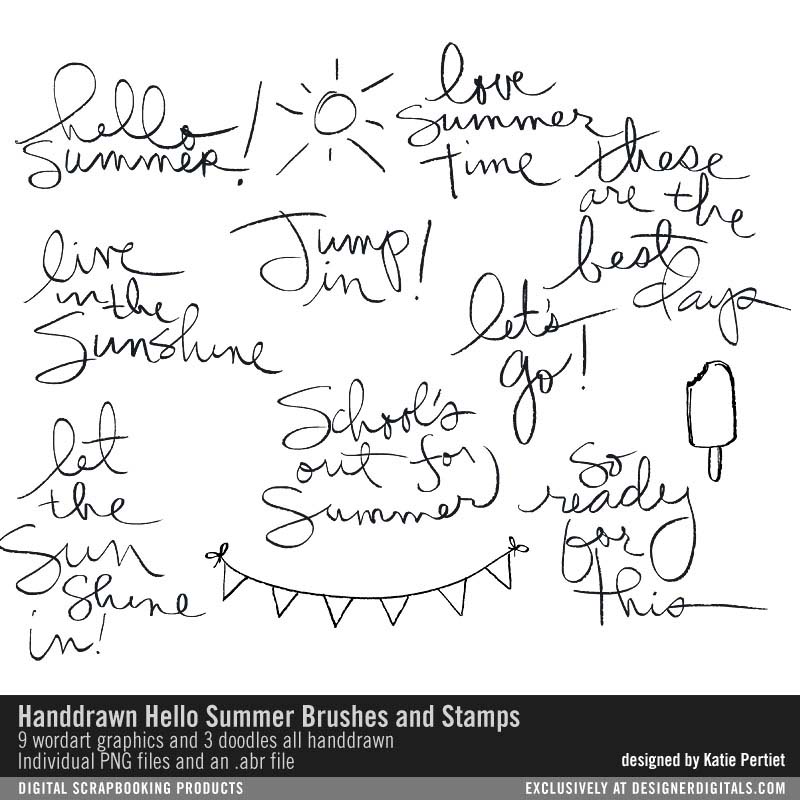 hello
summer!
love
summer
time
these
are the
best
days
live
in the
Sunshine
Jump
in!
let's
go!
School's
out for
Summer
let
the
Sun
Shine
in!
So
ready
for
this
Handdrawn Hello Summer Brushes and Stamps
9 wordart graphics and 3 doodles all handdrawn
Individual PNG files and an .abr file
designed by Katie Pertiet
DIGITAL SCRAPBOOKING PRODUCTS
EXCLUSIVELY AT DESIGNERDIGITALS.COM